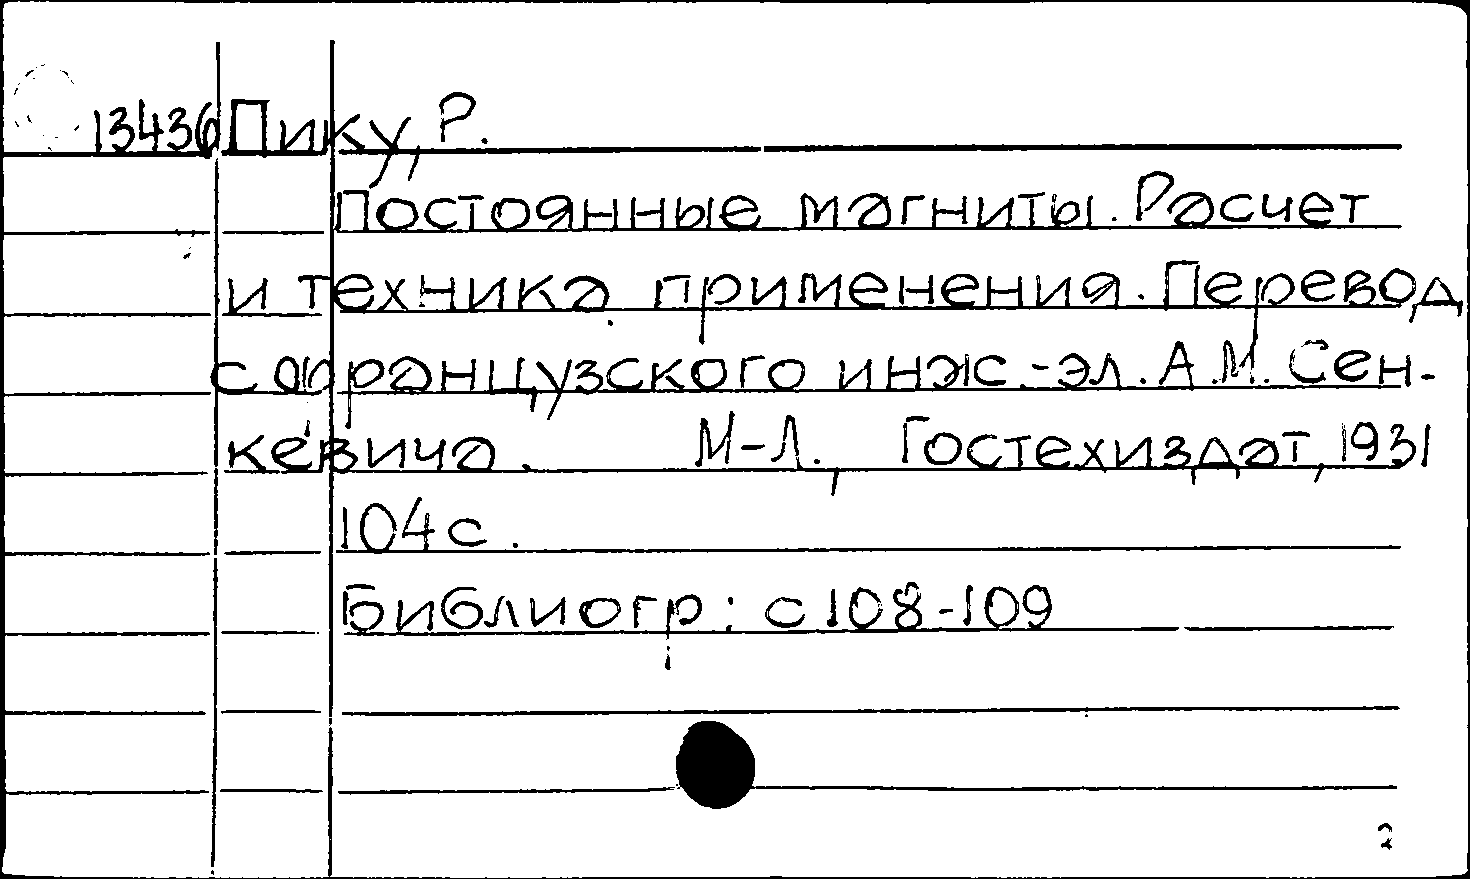 13436 Пику, Р.
Постоянные магниты. Расчет
и техника применения. Перевод
с французского инж.-эл. А.М. Сен-
кевича. М-Л., Гостехиздат, 1931
104 с.
Библиогр: с 108-109
2